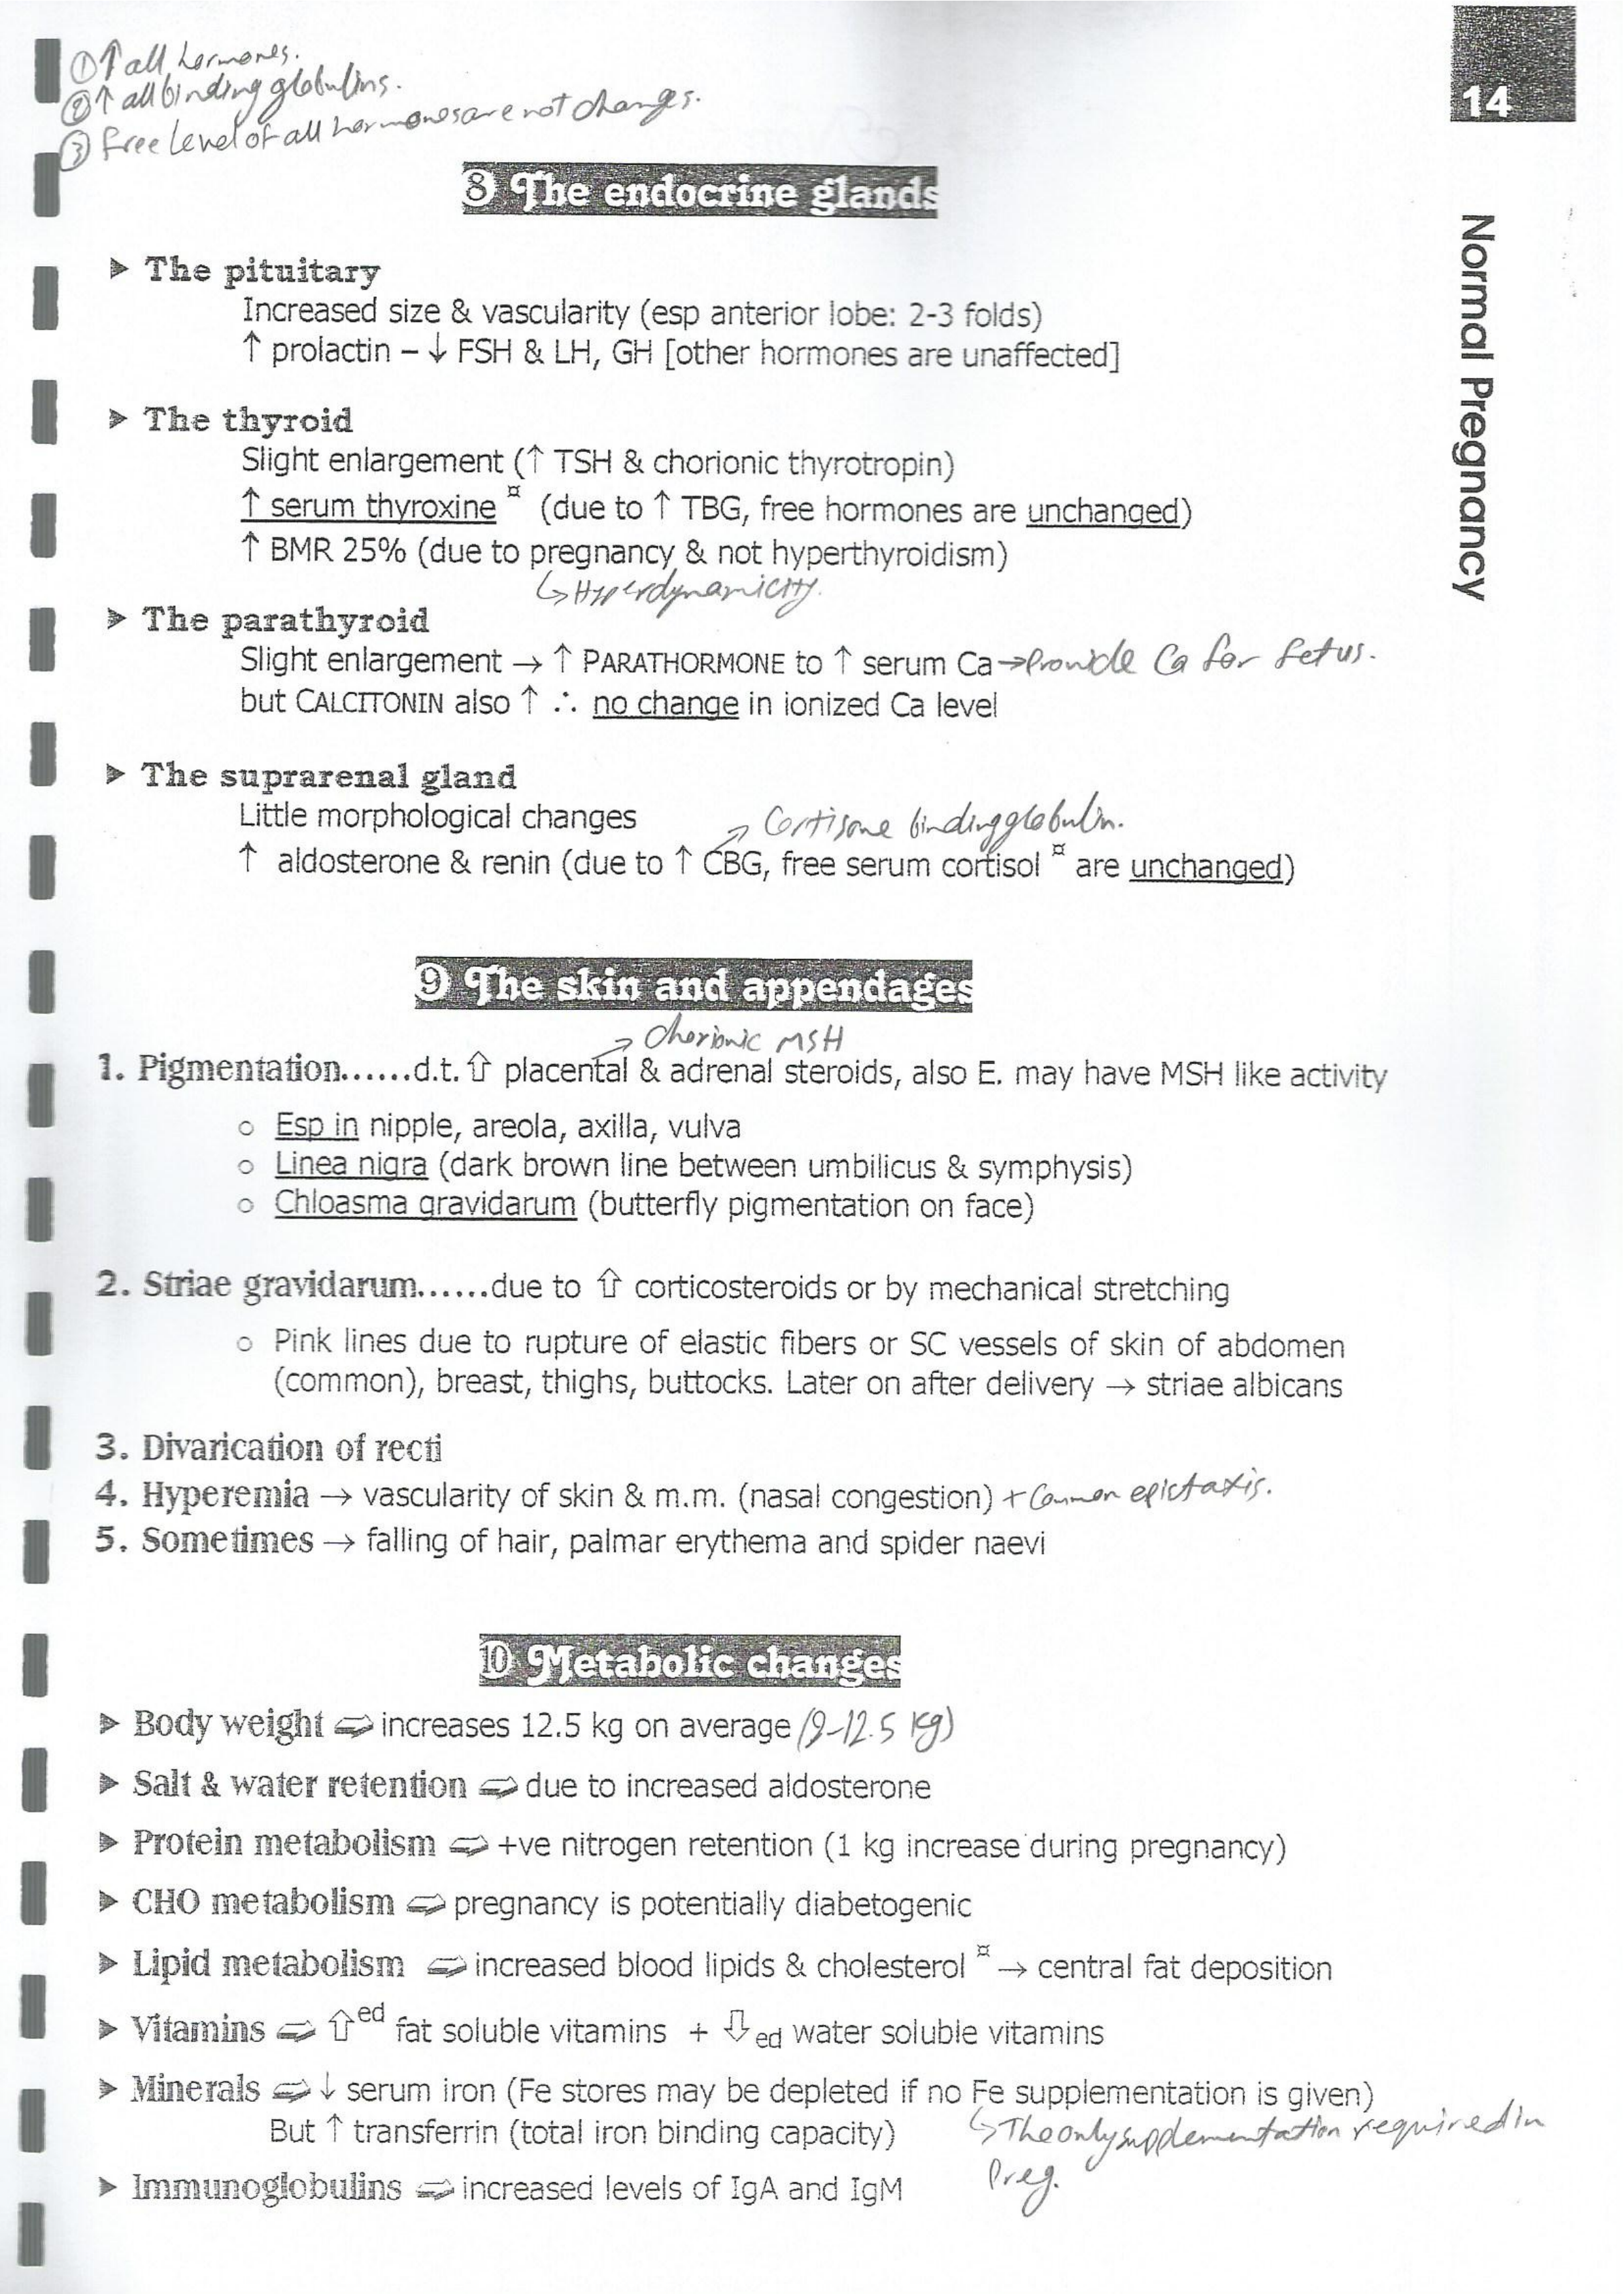 ① ↑ all hormones.
② ↑ all binding globulins.
③ free level of all hormones are not changes.
14
Normal Pregnancy
⑧ The endocrine glands
➤ The pituitary
Increased size & vascularity (esp anterior lobe: 2-3 folds)
↑ prolactin – ↓ FSH & LH, GH [other hormones are unaffected]
➤ The thyroid
Slight enlargement (↑ TSH & chorionic thyrotropin)
↑ serum thyroxine ¤ (due to ↑ TBG, free hormones are unchanged)
↑ BMR 25% (due to pregnancy & not hyperthyroidism)
↳ Hyperdynamicity.
➤ The parathyroid
Slight enlargement → ↑ PARATHORMONE to ↑ serum Ca → Provide Ca for fetus.
but CALCITONIN also ↑ ∴ no change in ionized Ca level
➤ The suprarenal gland
Little morphological changes
↗ Cortisone binding globulin.
↑ aldosterone & renin (due to ↑ CBG, free serum cortisol ¤ are unchanged)
⑨ The skin and appendages
↗ Chorionic MSH
1. Pigmentation......d.t. ⇧ placental & adrenal steroids, also E. may have MSH like activity
o Esp in nipple, areola, axilla, vulva
o Linea nigra (dark brown line between umbilicus & symphysis)
o Chloasma gravidarum (butterfly pigmentation on face)
2. Striae gravidarum......due to ⇧ corticosteroids or by mechanical stretching
o Pink lines due to rupture of elastic fibers or SC vessels of skin of abdomen
(common), breast, thighs, buttocks. Later on after delivery → striae albicans
3. Divarication of recti
4. Hyperemia → vascularity of skin & m.m. (nasal congestion) + Common epictaxis.
5. Sometimes → falling of hair, palmar erythema and spider naevi
⑩ Metabolic changes
➤ Body weight ⇨ increases 12.5 kg on average (9-12.5 Kg)
➤ Salt & water retention ⇨ due to increased aldosterone
➤ Protein metabolism ⇨ +ve nitrogen retention (1 kg increase during pregnancy)
➤ CHO metabolism ⇨ pregnancy is potentially diabetogenic
➤ Lipid metabolism ⇨ increased blood lipids & cholesterol ¤ → central fat deposition
➤ Vitamins ⇨ ⇧ed fat soluble vitamins + ⇩ed water soluble vitamins
➤ Minerals ⇨ ↓ serum iron (Fe stores may be depleted if no Fe supplementation is given)
But ↑ transferrin (total iron binding capacity)
↳ The only supplementation required in
Preg.
➤ Immunoglobulins ⇨ increased levels of IgA and IgM